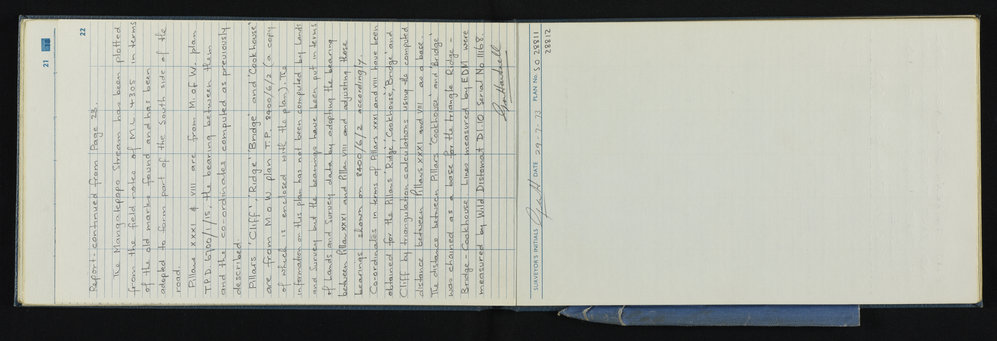 21
22
Report: continued from Page 23.
The Mangatepopo Stream has been plotted
from the field notes of ML 4305 in terms
of the old marks found and has been
adopted to form part of the South side of the
road.
Pillars XXXI & VIII are from M. of W. plan
T.P.D. 6900/1/15, the bearing between them
and the co-ordinates computed as previously
described.
Pillars 'Cliff', 'Ridge' 'Bridge' and 'Cookhouse'
are from M.o.W plan T.P. 8400/6/2 (a copy
of which is enclosed with the plan). The
information on this plan has not been computed by Lands
and Survey but the bearings have been put in terms
of Lands and Survey data by adopting the bearing
between Pillar XXXI and Pillar VIII and adjusting those
bearings shown on 8400/6/2 accordingly.
Co-ordinates in terms of Pillars XXXI and VIII have been
obtained for the Pillars 'Ridge', 'Cookhouse', 'Bridge' and
Cliff by triangulation calculations using the computed
distance between Pillars XXXI and VIII as a base.
The distance between Pillars 'Cookhouse' and 'Bridge'
was chained as a base for the triangle Ridge -
Bridge - Cookhouse. Lines measured by EDM were
measured by Wild Distomat DI.10 Serial No. 11168.
SURVEYOR'S INITIALS DATE 29-7-73 PLAN No. SO 28811
28812